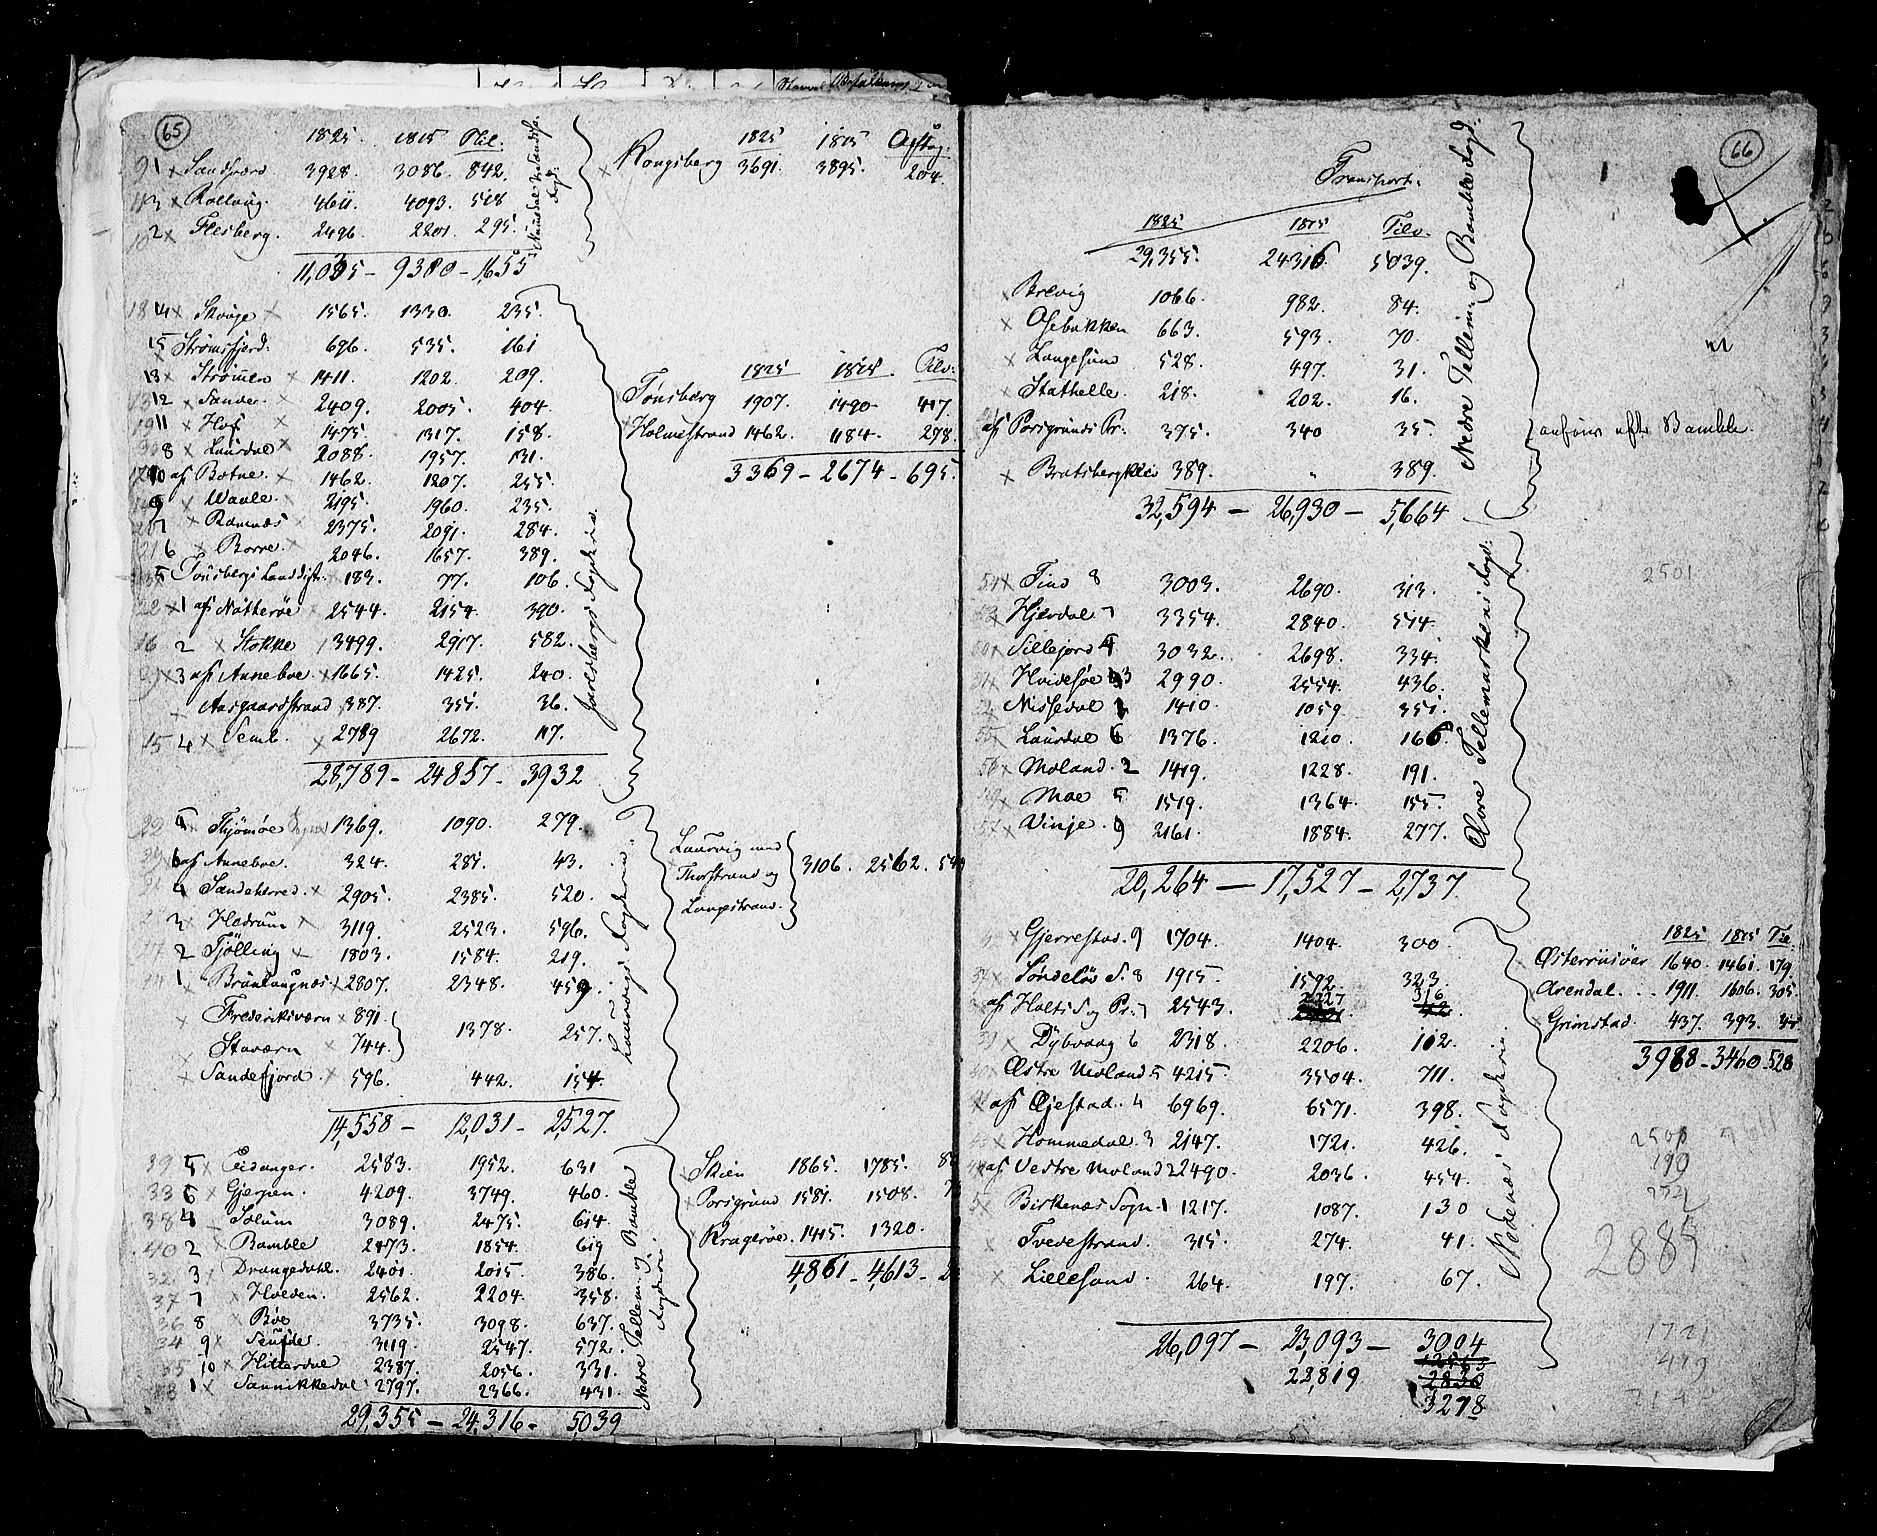 65
1825. 1815 Til.
91 Sandsværd 3928. 3086. 842.
Rollaug. 4611. 4093. 518
2 Flesberg. 2496. 2201. 295.
11,035 - 9380 - 1,655
Kongsberg
1825 1815 Afstag:
3691. 3895. 204.
14 Skouge 1565. 1330. 235.
15 Strømsfjord. 696. 535. 161
13 Strømen 1411. 1202. 209.
12 Sande. 2409. 2005. 404.
11 Hof 1475. 1317. 158.
8 Laurdal 2088. 1957. 131.
10 af Botne. 1462. 1207. 255.
9 Waale. 2195. 1960. 235.
7 Ramnæs 2375. 2091. 284.
6 Borre. 2046. 1657. 389.
5 Tønsbergs Landdistr. 183. 77. 106.
1 af Nøtterøe 2544. 2154. 390.
2 Stokke 3499. 2917. 582.
3 af Anneboe. 1665. 1425. 240.
Aasgaardstrand 387. 351. 36.
15 4 Semb. 2789 2672. 117.
28,789 - 24857 - 3932
Jarlsbergs Fogderie
1825 1815. Tilv:
Tønsberg 1907. 1490. 417.
Holmestrand 1462. 1184. 278.
3369 - 2674 - 695.
5 Thjømøe Sogn 1369. 1090. 279.
6 af Anneboe. 324. 281. 43.
4 Sandeherred. 2905. 2385. 520.
3 Hedrum 3119. 2523. 596.
2 Tjølling 1803. 1584. 219.
1 Brunlaugnæs. 2807. 2348. 459.
Frederiksværn 891.
Staværn 744. 1378. 257.
Sandefjord. 596. 442. 154.
14,558 - 12,031 - 2527.
Laurvigs Fogderie.
Laurvig med
Thorstrand og
Langestrand. 3106. 2562. 544
39 5 Eidanger. 2583. 1952. 631
33 6 Gjerpen. 4209. 3749. 460.
38 4 Solum 3089. 2475. 614.
40 2 Bamble 2473. 1854. 619
3 Drangedahl. 2401. 2015. 386.
37 7 Holden. 2562. 2204. 358.
36 8 Bøe 3735. 3098. 637.
34 9 Seufde 3119. 2547. 572.
35 10 Hitterdal 2387. 2056. 331.
1 Sannikkedal 2797. 2366. 431.
29,355 - 24,316 - 5039
Nedre Tellem: og Bamble
Fogderie.
Skien 1865. 1785. 8
Porsgrund 1581. 1508. 7
Kragerøe. 1415. 1320.
4,861 - 4,613 - 2
66
Transport.
1825 1815 Tilv.
29,355. 24316. 5039.
Brevig 1066. 982. 84.
Osebakken 663. 593. 70.
Langesund 528. 497. 31.
Stathelle. 218. 202. 16.
af Porsgrunds Pr. 375. 340 35.
Bratsbergklev 389. " 389.
32,594 - 26,930 - 5,664
Nedre Tellem: og Bamble Fogd:
anføres efter Bamble.
Tind 8 3003. 2690. 313.
Hjerdal 7 3354. 2840. 514.
Sillejord 4 3032. 2698. 334.
Hvidesøe 3 2990. 2554. 436.
Nissedal 1 1410. 1059. 351.
Laurdal 6 1376. 1210. 166.
Moland. 2 1419. 1228. 191.
Moe 5 1519. 1364. 155.
Vinje. 9 2161. 1884. 277.
20,264 - 17,527 - 2,737.
Øvre Tellemarkens Fogd:
2501
Gjerrestad. 9 1704. 1404. 300.
Søndeløv S. 8 1915. 1592. 323.
af Holts S. og Pr. 7 2543. 2227 316
Dybvaag 6 2318. 2206. 112.
Østre Moland 5 4215. 3504. 711.
af Øjestad. 4 6969. 6571. 398.
Hommedal. 3 2147. 1721. 426.
af Vestre Moland 2 2490. 2036. 454.
Birkenæs Sogn. 1 1217. 1087. 130
Tvedestrand. 315. 274. 41.
Lillesand. 264. 197. 67.
26,097 - 23,093 - 3004
22,819 2830
3278
Nedenæs Fogderie.
1825 1815 Til.
Østerriisøer 1640. 1461. 179.
Arendal. 1911. 1606. 305.
Grimstad. 437. 393. 44
3988 - 3460 - 528
2885
1721